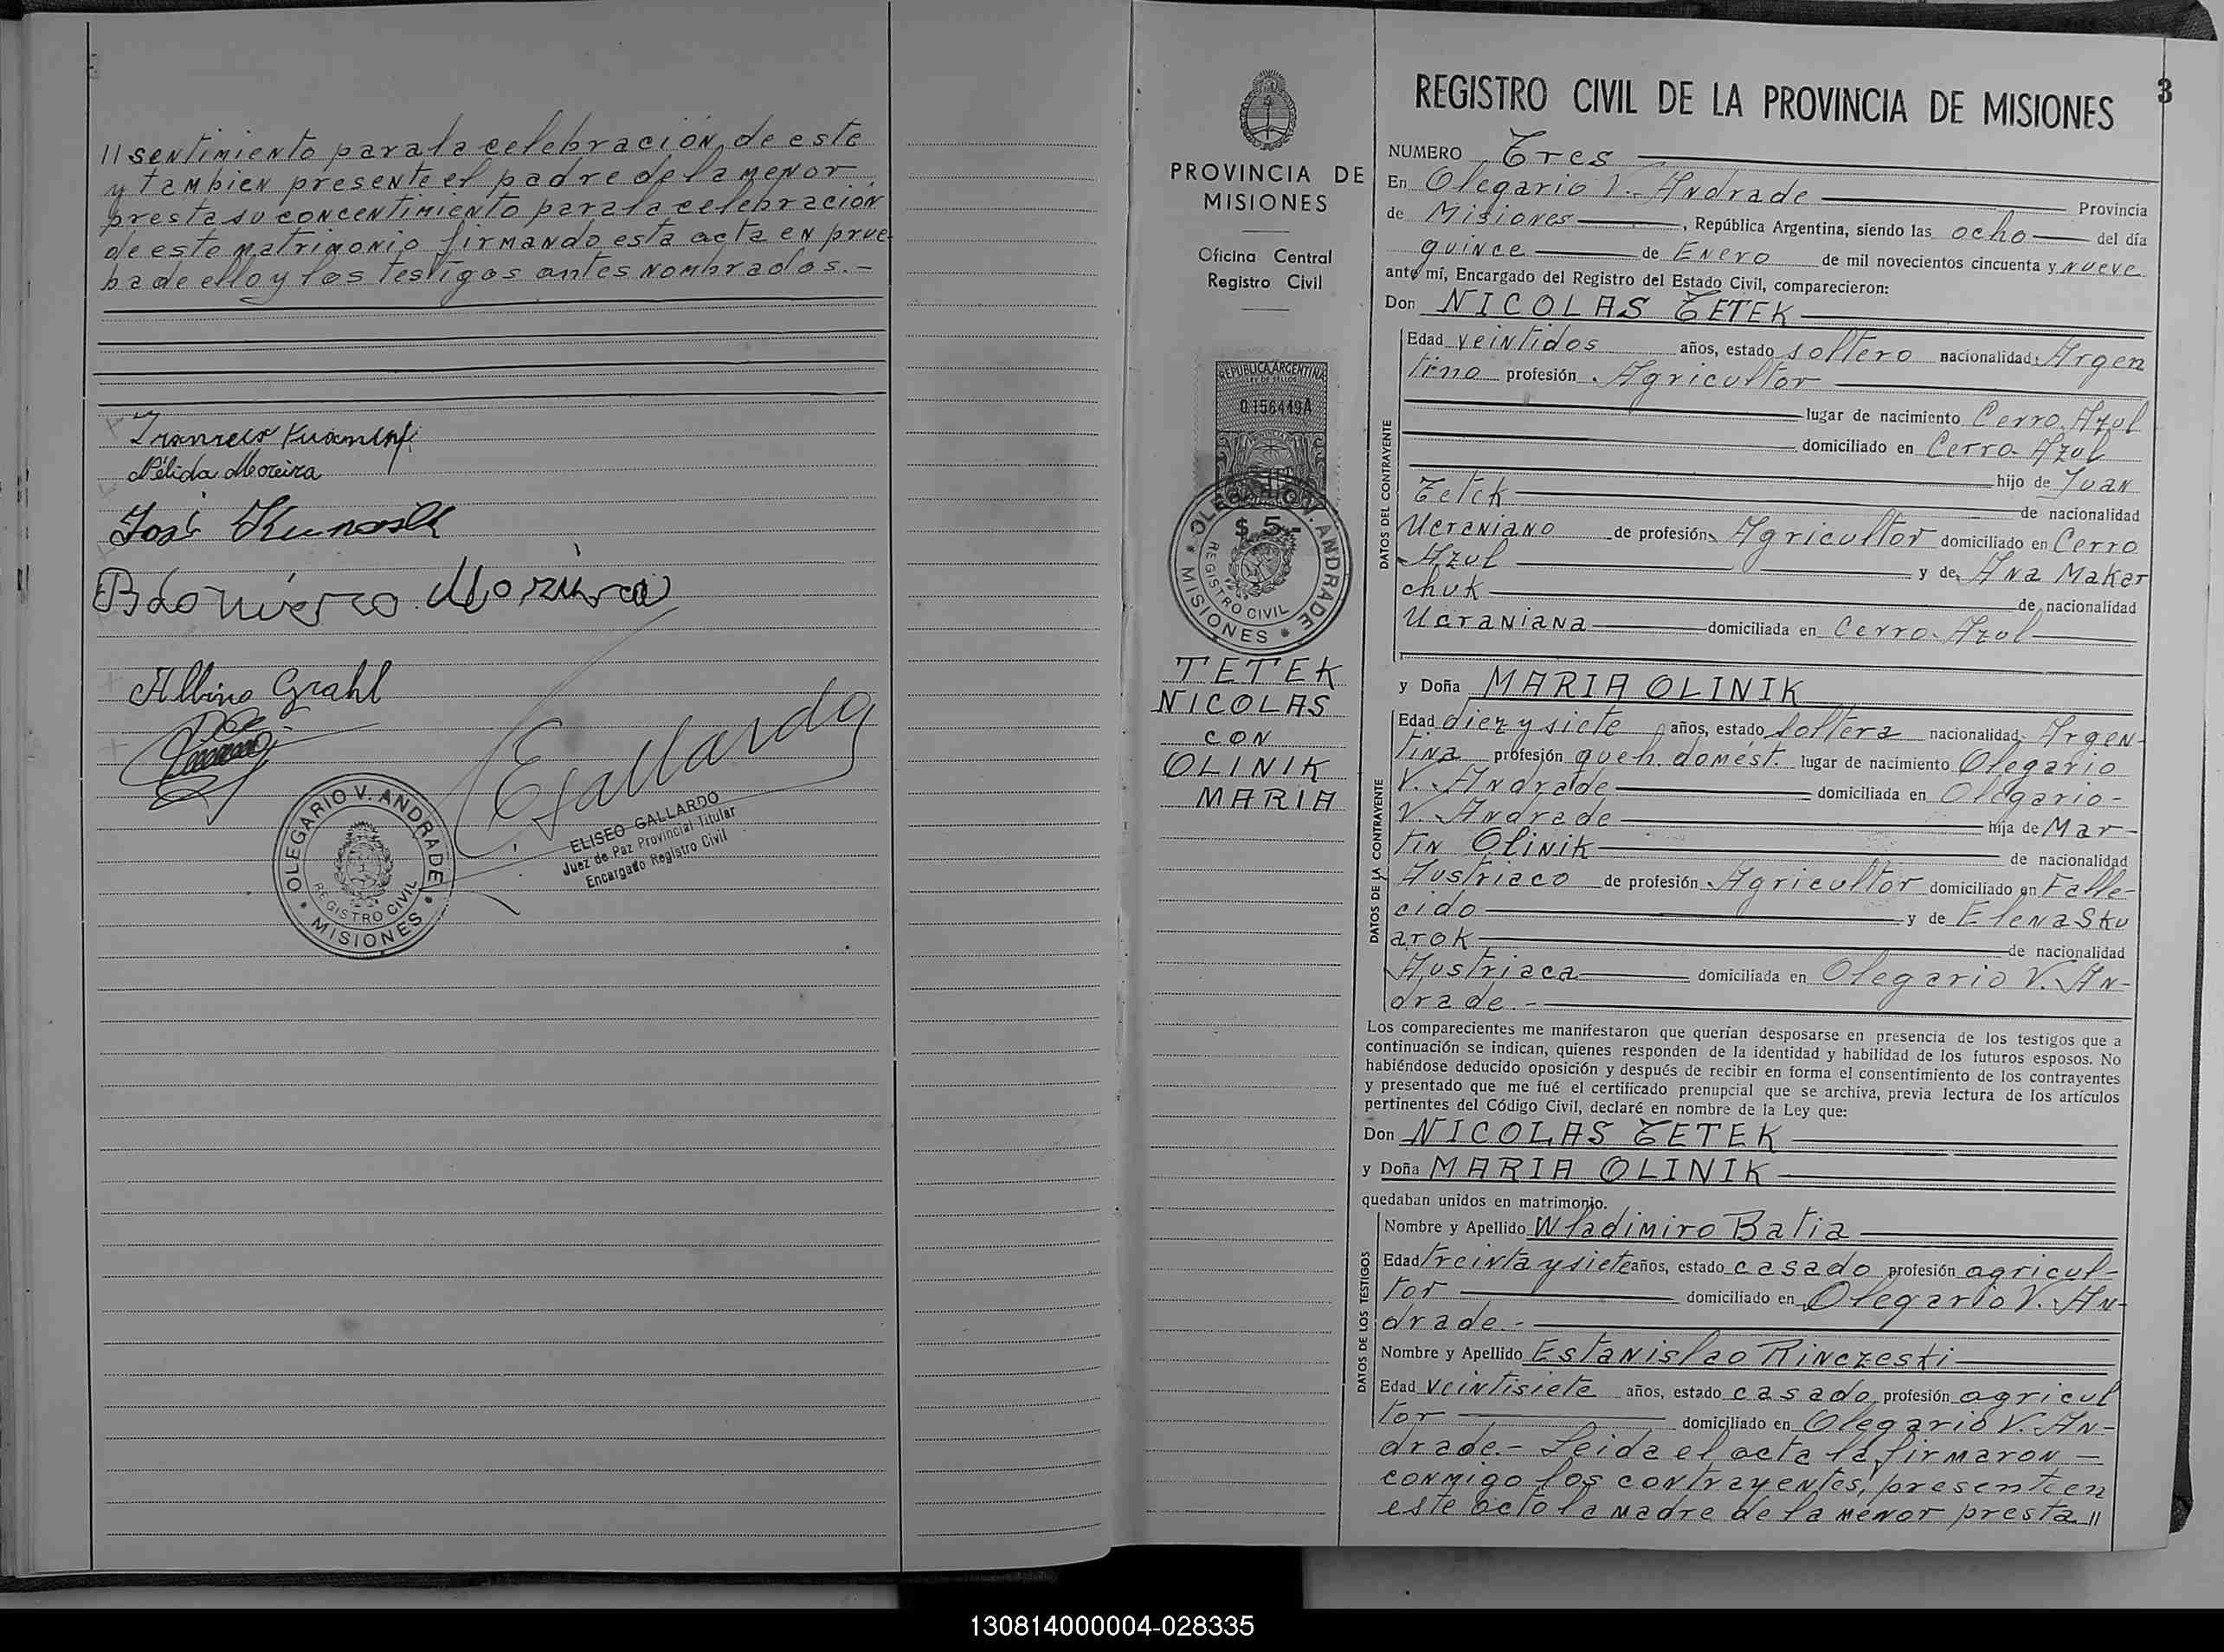 // sentimiento para la celebración de este
y tambien presente el padre de la menor
presta su concentimiento para la celebración
de este matrimonio firmando esta acta en prue-
ba de ello y los testigos antes nombrados.-
Nélida Moreira
José
Moreira
Albino Grahl
EGallardo
ELISEO GALLARDO
Juez de Paz Provincial Titular
Encargado Registro Civil
OLEGARIO V. ANDRADE
REGISTRO CIVIL
* MISIONES *
PROVINCIA DE
MISIONES
Oficina Central
Registro Civil
REPUBLICA ARGENTINA
LEY DE SELLOS
0.156449A
$ 5.-
OLEGARIO V. ANDRADE
REGISTRO CIVIL
* MISIONES *
TETEK
NICOLAS
CON
OLINIK
MARIA
3
REGISTRO CIVIL DE LA PROVINCIA DE MISIONES
NUMERO Tres
En Olegario V. Andrade Provincia
de Misiones, República Argentina, siendo las ocho del día
quince de Enero de mil novecientos cincuenta y nueve
ante mí, Encargado del Registro del Estado Civil, comparecieron:
Don NICOLAS TETEK
DATOS DEL CONTRAYENTE
Edad veintidos años, estado soltero nacionalidad Argen
tino profesión Agricultor
lugar de nacimiento Cerro Azul
domiciliado en Cerro Azul
hijo de Juan
Tetek de nacionalidad
Ucraniano de profesión Agricultor domiciliado en Cerro
Azul y de Ana Makar
chuk de nacionalidad
Ucraniana domiciliada en Cerro Azul
y Doña MARIA OLINIK
DATOS DE LA CONTRAYENTE
Edad diez y siete años, estado soltera nacionalidad Argen-
tina profesión queh. domést. lugar de nacimiento Olegario
V. Andrade domiciliada en Olegario-
V. Andrade hija de Mar-
tin Olinik de nacionalidad
Austriaco de profesión Agricultor domiciliado en Falle-
cido y de Elena Sku
arok de nacionalidad
Austriaca domiciliada en Olegario V. An-
drade.-
Los comparecientes me manifestaron que querían desposarse en presencia de los testigos que a
continuación se indican, quienes responden de la identidad y habilidad de los futuros esposos. No
habiéndose deducido oposición y después de recibir en forma el consentimiento de los contrayentes
y presentado que me fué el certificado prenupcial que se archiva, previa lectura de los artículos
pertinentes del Código Civil, declaré en nombre de la Ley que:
Don NICOLAS TETEK
y Doña MARIA OLINIK
quedaban unidos en matrimonio.
DATOS DE LOS TESTIGOS
Nombre y Apellido Wladimiro Batia
Edad treinta y siete años, estado casado profesión agricul-
tor domiciliado en Olegario V. An-
drade.-
Nombre y Apellido Estanislao Rinczeski
Edad veintisiete años, estado casado profesión agricul
tor domiciliado en Olegario V. An-
drade.- Leida el acta la firmaron -
conmigo los contrayentes, presente en
este acto la madre de la menor presta //
130814000004-028335